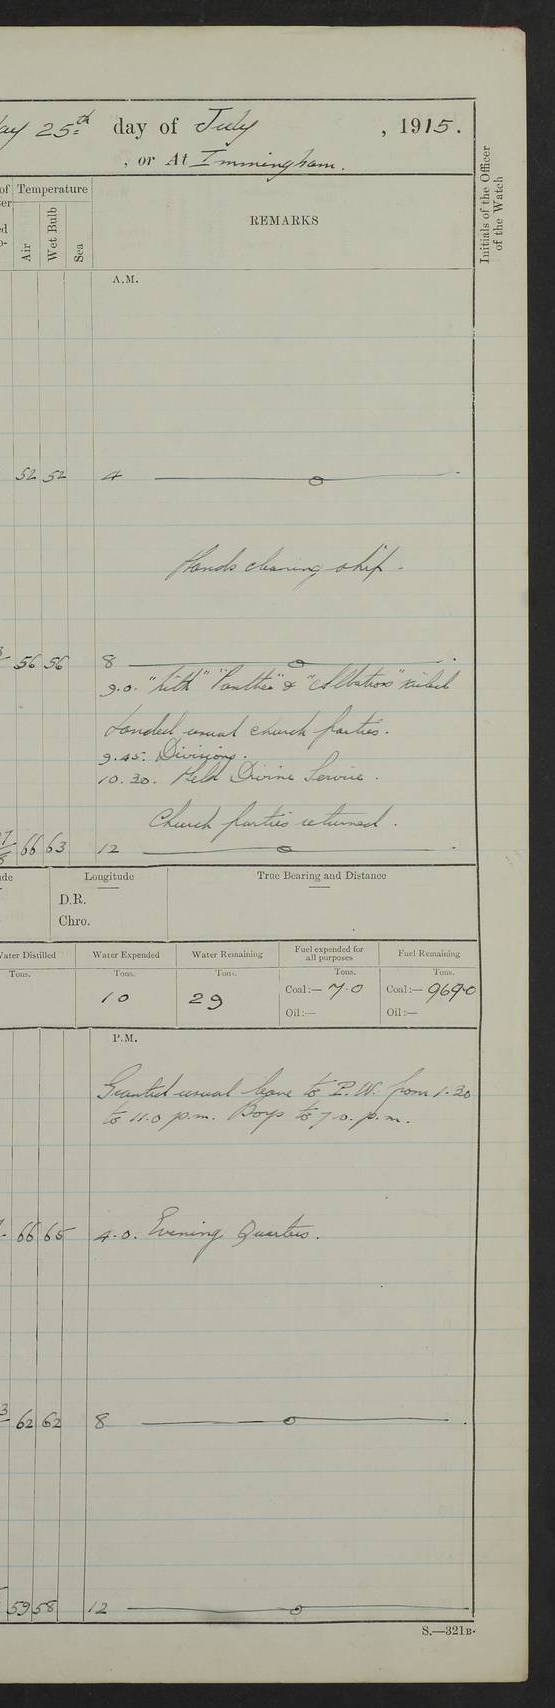 ay 25th day of July, 1915.
, or At Immingham.
of Temperature
Air
Wet Bulb
Sea
REMARKS
Initials of the Officer
of the Watch
A.M.
52 52 4
Hands cleaning ship.
56 56 8
9.0. "Kith" "Panther" & "Albatross"
Landed usual church parties.
9.45. Divisions.
10.30. Held Divine Service.
Church parties returned.
66 63 12
Longitude
True Bearing and Distance
D.R.
Chro.
Water Distilled Water Expended Water Remaining Fuel expended for all purposes Fuel Remaining
Tons. Tons. Tons. Tons. Tons.
10 29 Coal:— 7.0 Coal:— 969.0
Oil:— Oil:—
P.M.
Granted usual leave to P.W. from 1.30
to 11.0 p.m. Boys to 7.0. p.m.
66 65 4.0. Evening Quarters.
62 62 8
59 58 12
S.—321B.